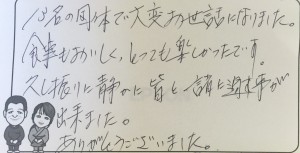 13名の団体で大変お世話になりました。
食事もおいしく、とっても楽しかったです。
久し振りに静かに皆と一諸に過す事が
出来ました。
ありがとうございました。